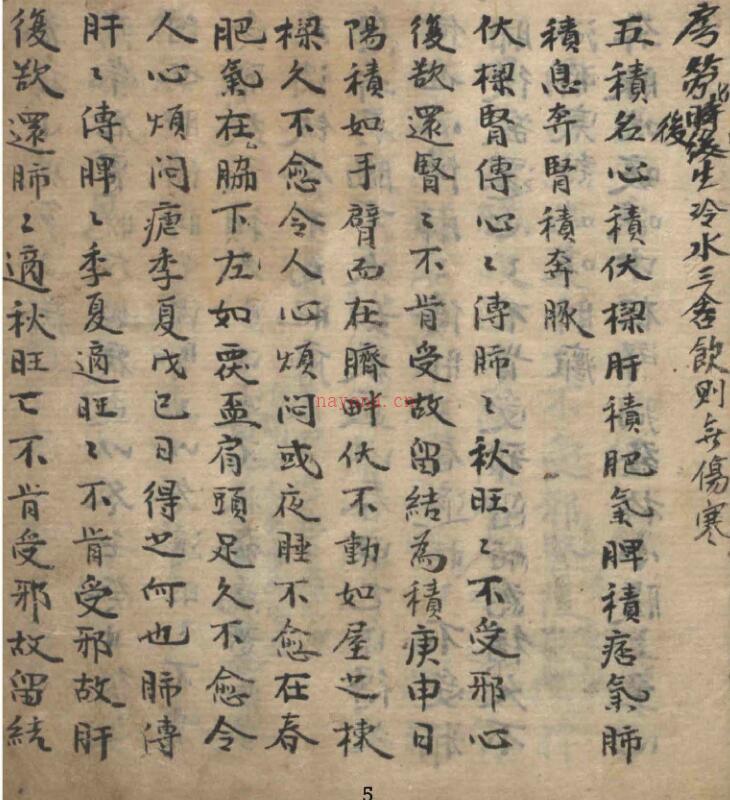 房勞時後生冷水三合飲則無傷寒
後
五積名心積伏樑肝積肥氣脾積痞氣肺
積息奔腎積奔豚
伏樑腎傳心〻傳肺〻秋旺〻不受邪心
後欲還腎〻不肯受故留結為積庚申日
陽積如手臂而在臍畔伏不動如屋之棟
樑久不愈令人心煩悶或夜睡不愈在春
肥氣在脇下左如覆盃有頭足久不愈令
人心煩悶瘧季夏戊己日得之何也肺傳
肝〻傳脾〻季夏適旺〻不肯受邪故肝
後欲還肺〻適秋旺亡不肯受邪故留結
nayona.cn
5